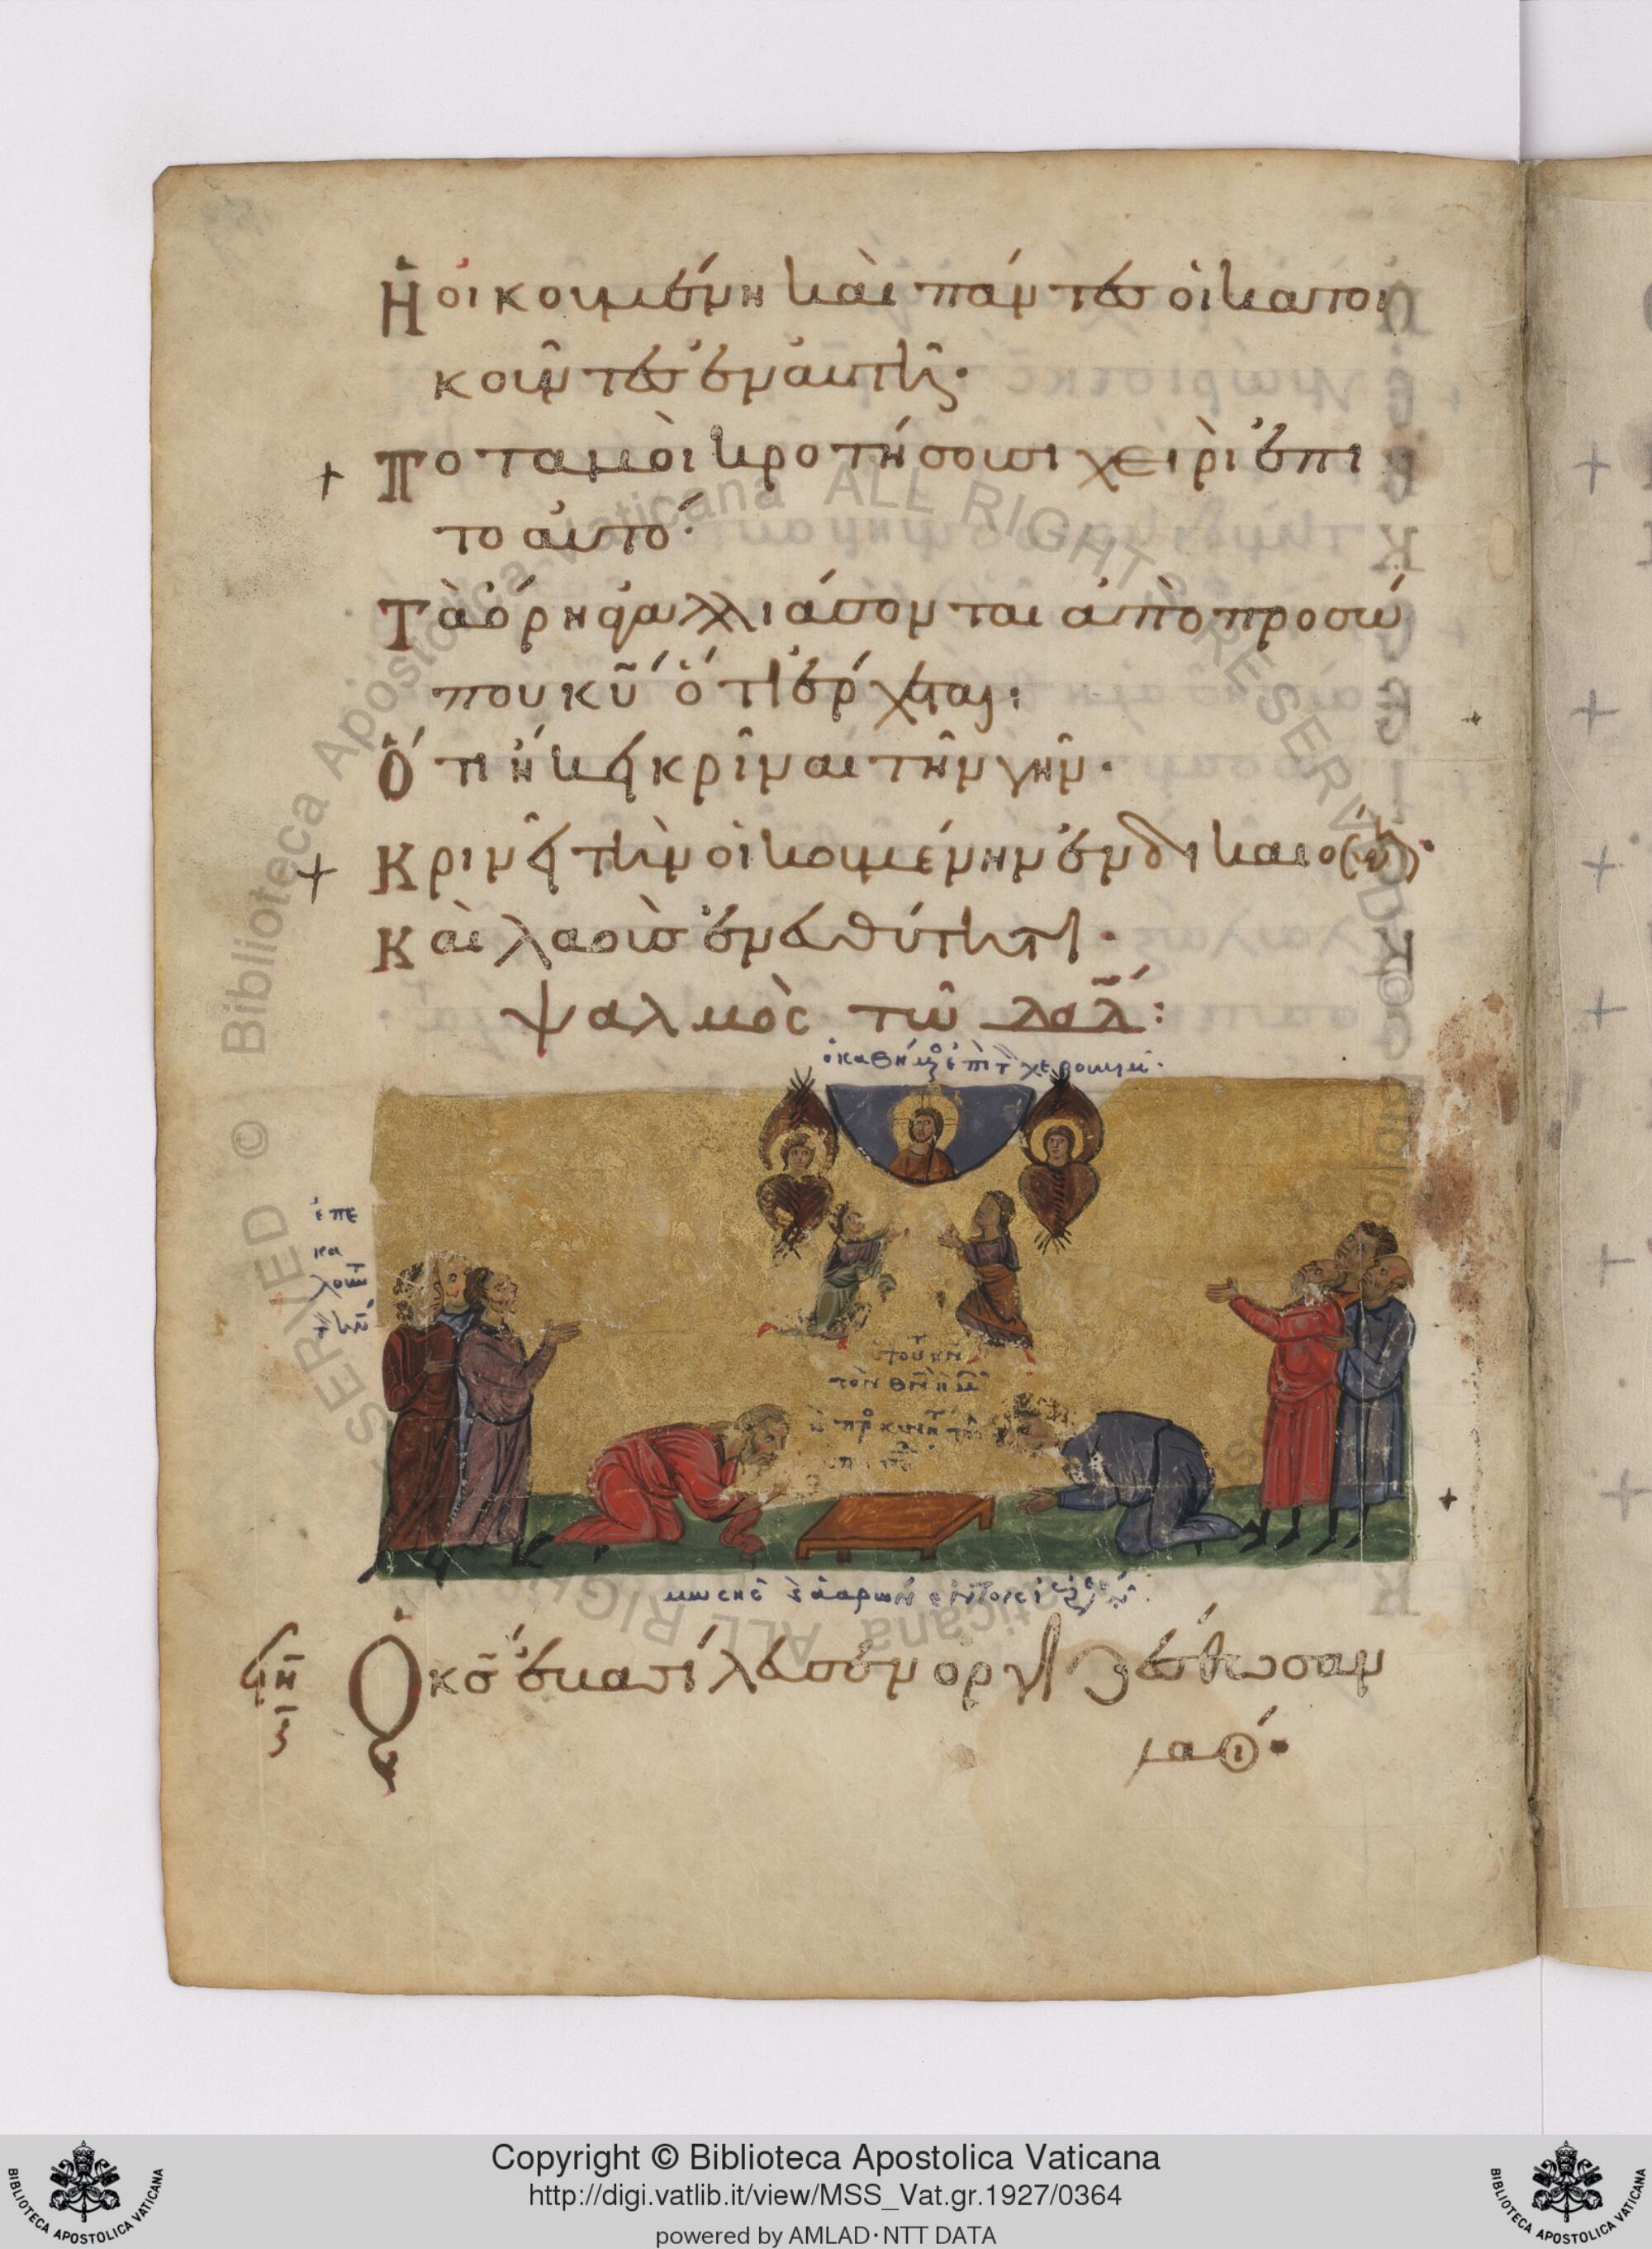 Ἡ οἰκουμένη καὶ πάντες οἱ κατοι
κοῦντες ἐν αὐτῆ·
Ποταμοὶ κροτήσουσι χειρὶ ἐπι
τοαυτό·
Τὰ ὄρη ἀγαλλιάσονται ἀπὸ προσώ
που κῦ ὅτι ἔρχεται:
Ὅτι ἥκει κρῖναι τὴν γῆν·
Κρινεῖ τὴν οἰκουμένην ἐν δικαιοσύνη·
Καὶ λαοὺς ἐν εὐθύτητι·
ψαλμὸς τῶ δαδ:
ὁ καθήμενος ἐπὶ τ χερουβιμ·
ἐπε
κα
λουντ
τὸν κν
τὸν θν ἡμ
μωσης καὶ ἀαρων ἐν τοις
ϟη
Ὁ κς ἐβασίλευσεν ὀργιζέσθωσαν
λαοί·
Copyright © Biblioteca Apostolica Vaticana
http://digi.vatlib.it/view/MSS_Vat.gr.1927/0364
powered by AMLAD·NTT DATA
BIBLIOTECA APOSTOLICA VATICANA
BIBLIOTECA APOSTOLICA VATICANA